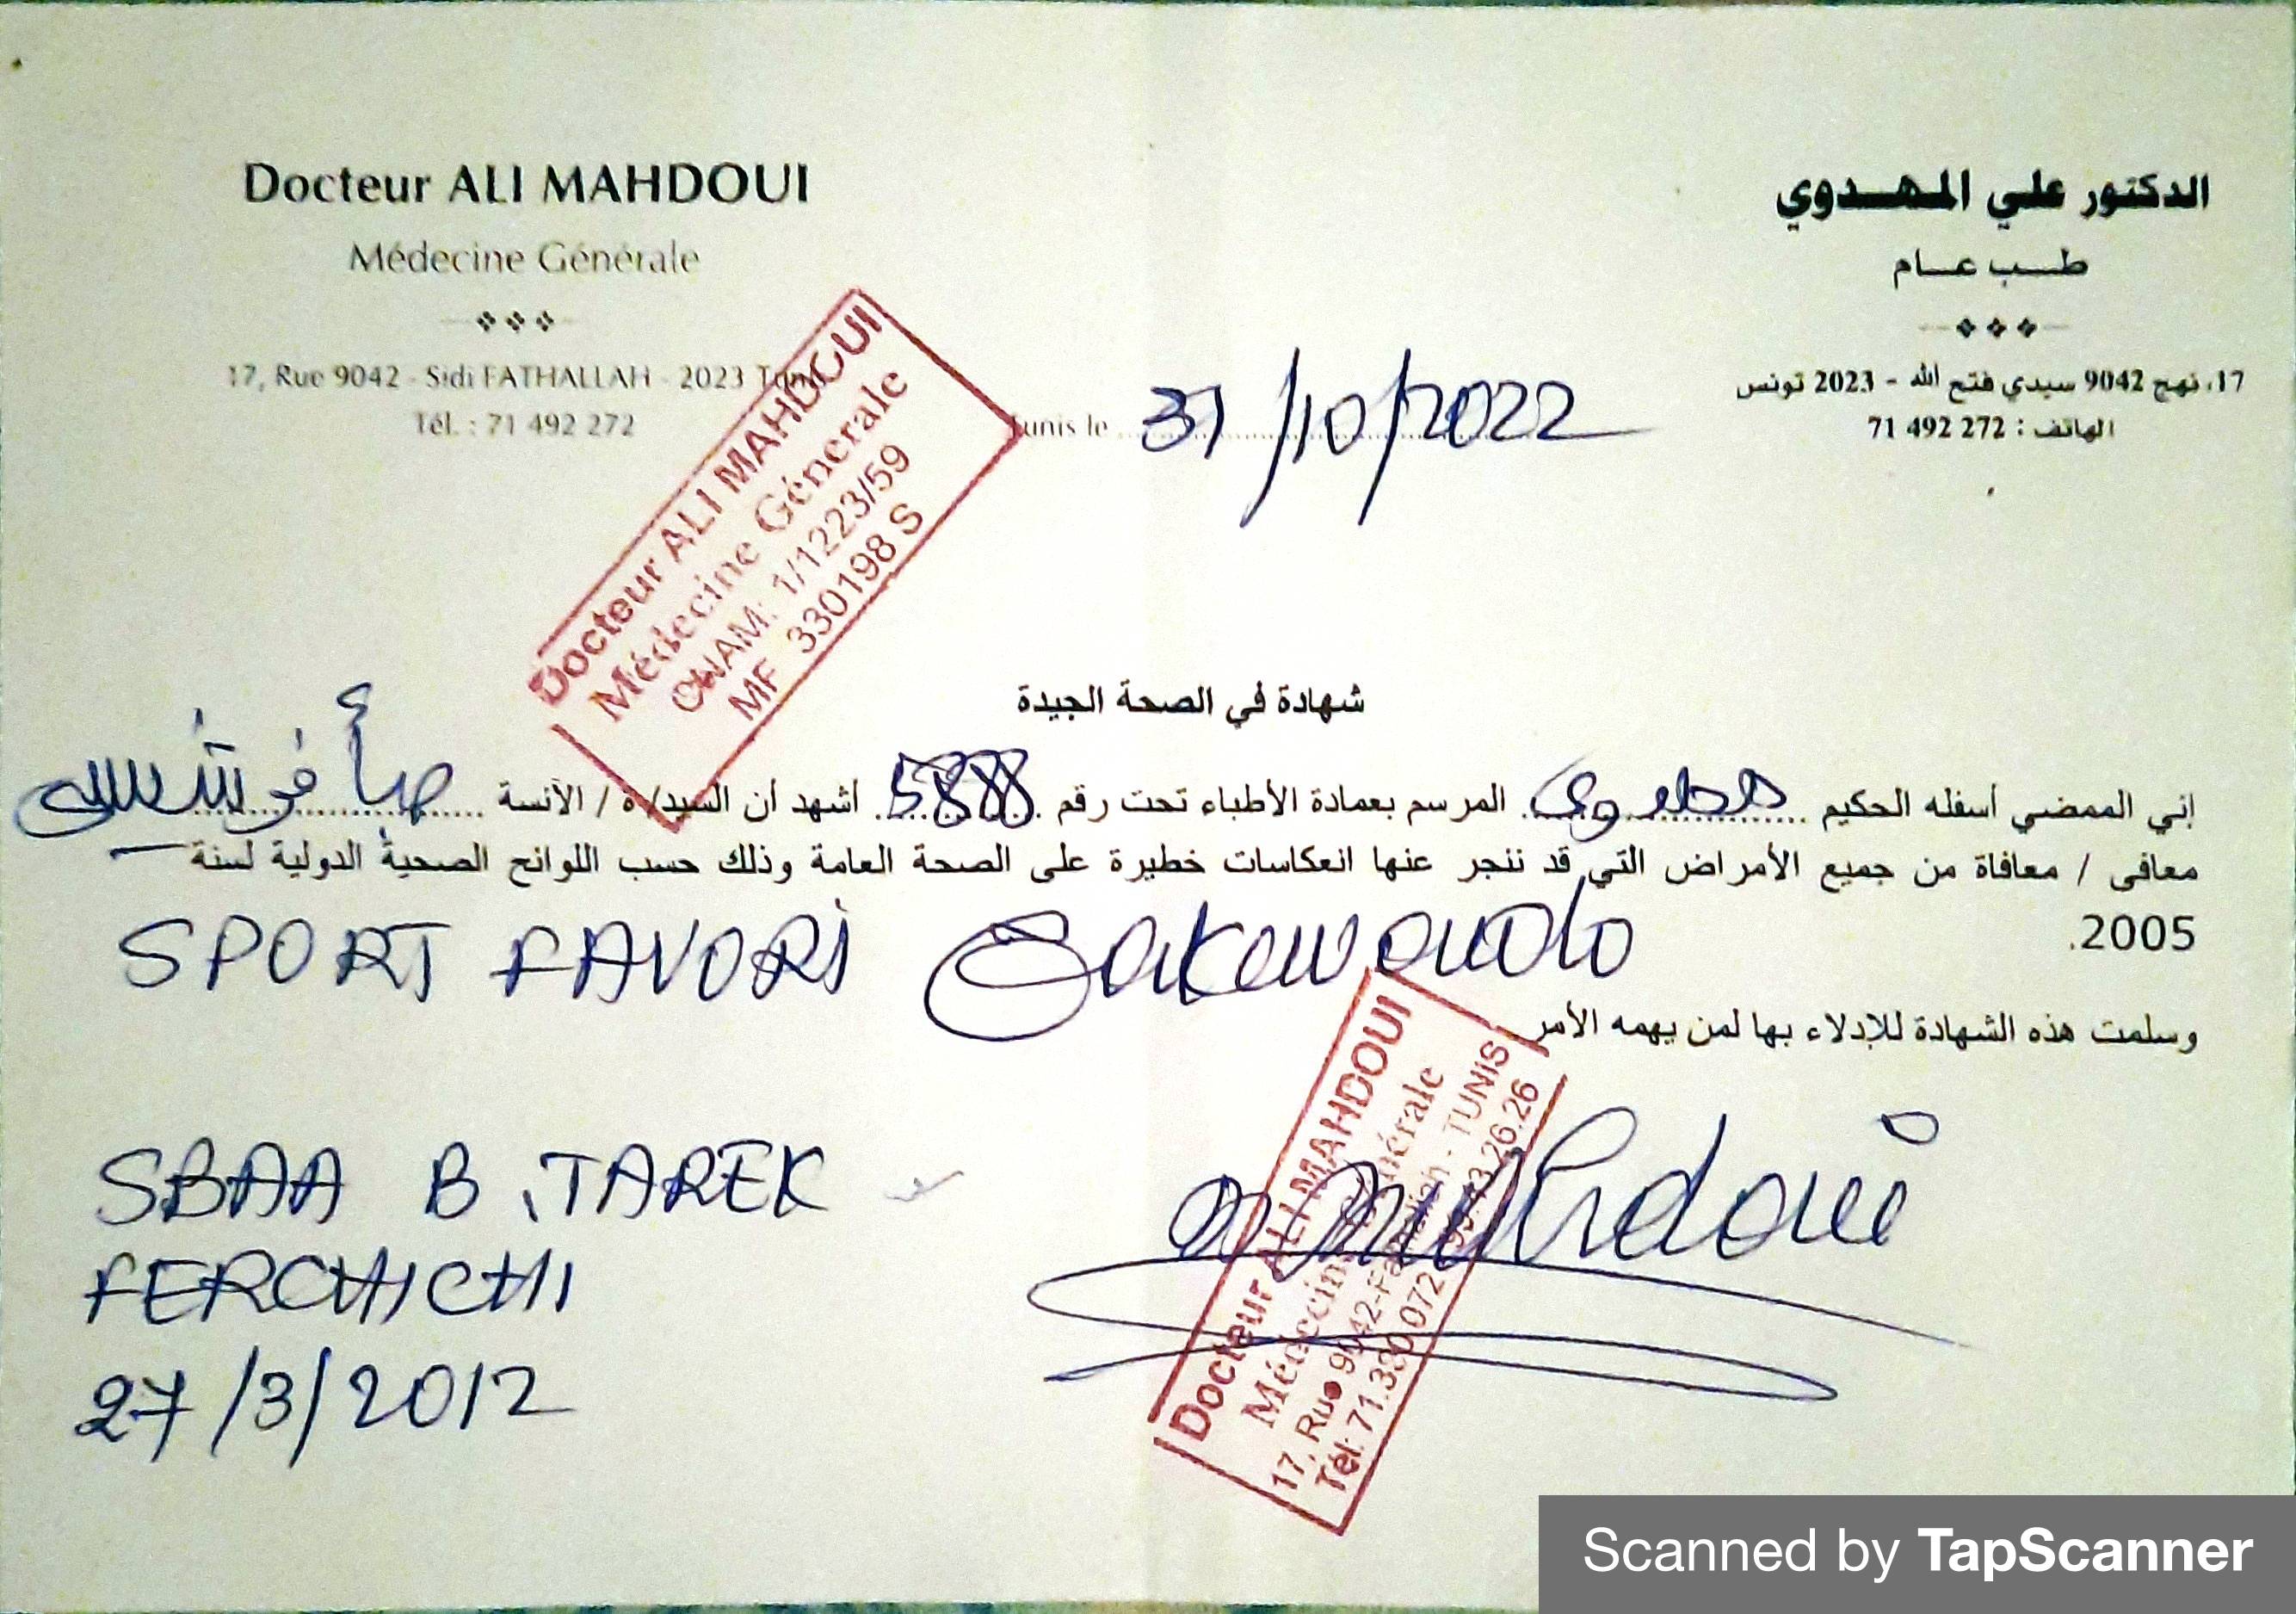 Docteur ALI MAHDOUI
Médecine Générale
17, Rue 9042 - Sidi FATHALLAH - 2023 Tunis
Tél. : 71 492 272
الدكتور علي المهدوي
طب عام
17، نهج 9042 سيدي فتح الله - 2023 تونس
الهاتف : 272 492 71
Tunis le 31/10/2022
Docteur ALI MAHDOUI
Médecine Générale
CNAM: 1/1223/59
MF 330198 S
شهادة في الصحة الجيدة
إني الممضي أسفله الحكيم المهدوي المرسم بعمادة الأطباء تحت رقم أشهد أن السيد/ة / الآنسة صبأ فرشيشي
معافى / معافاة من جميع الأمراض التي قد ننجر عنها انعكاسات خطيرة على الصحة العامة وذلك حسب اللوائح الصحية الدولية لسنة
2005.
SPORT FAVORI
وسلمت هذه الشهادة للإدلاء بها لمن يهمه الأمر
SBAA B.TAREK
FERCHICHI
27/3/2012
Mahdoui
Docteur ALI MAHDOUI
Médecine Générale
17, Rue 9042-Fathallah - TUNIS
Tél: 71.380.072
Scanned by TapScanner